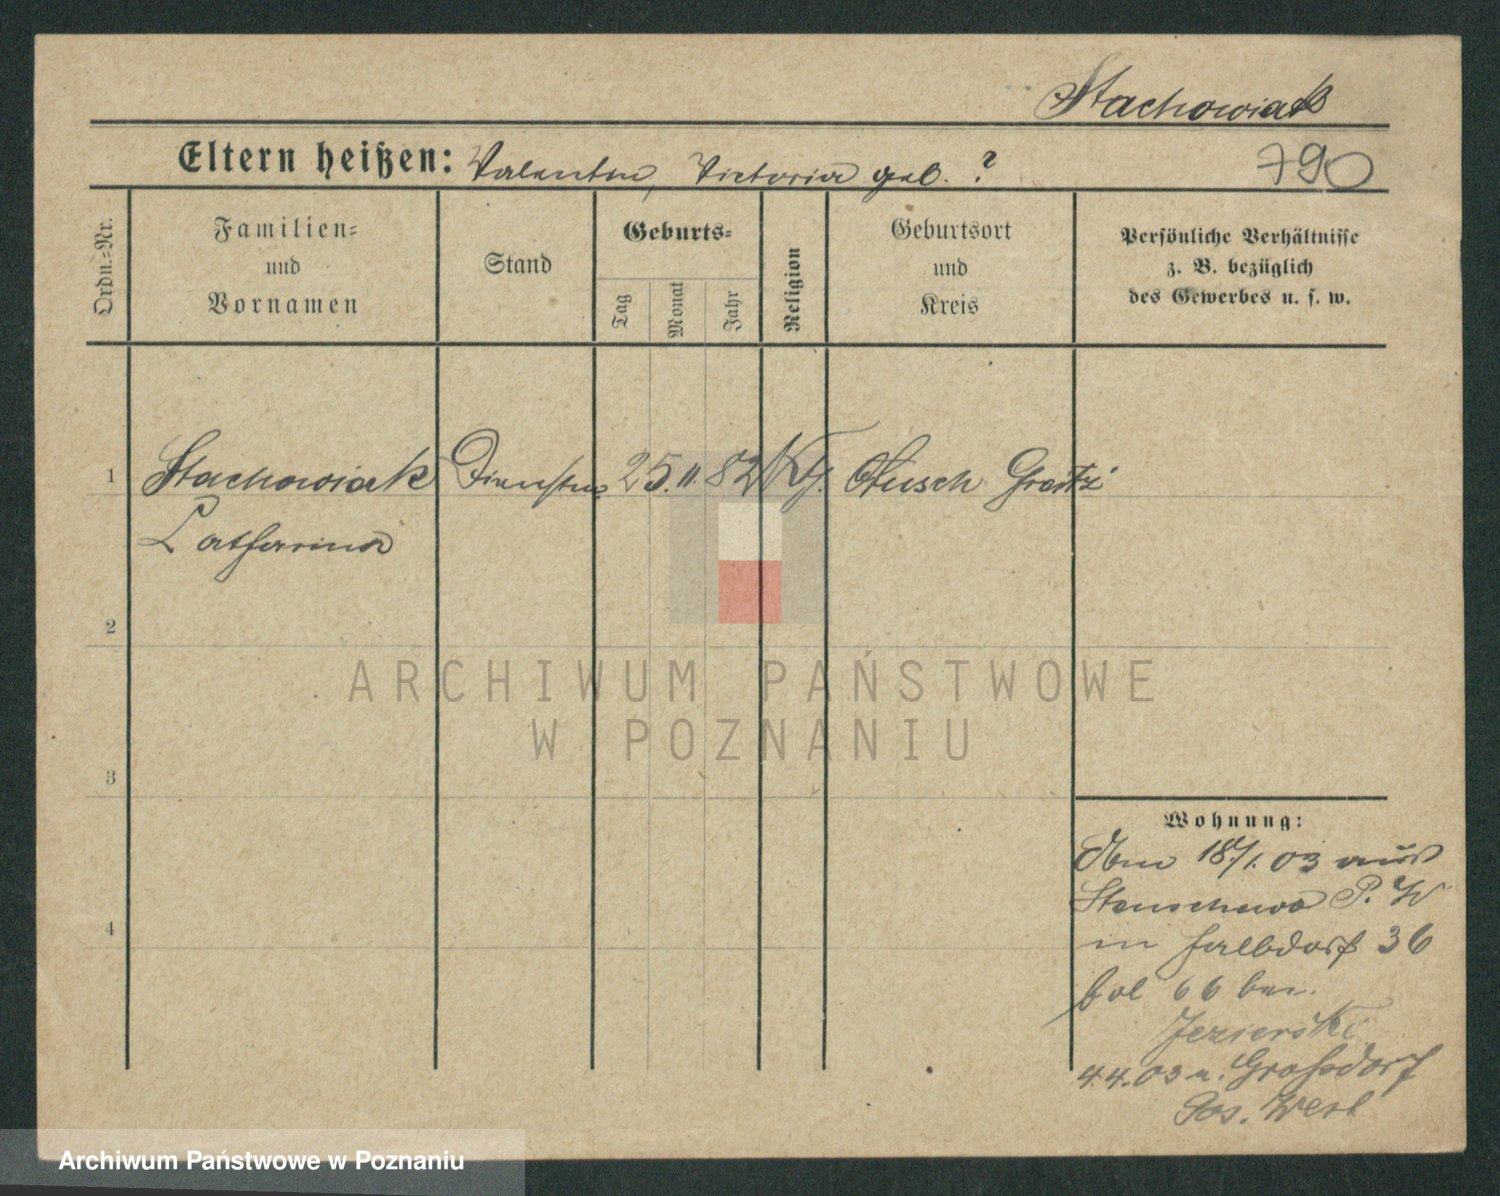 Stachowiak
Eltern heißen: Valentin, Victoria geb. ?
790
Ordn.-Nr.
Familien-
und
Vornamen
Stand
Geburts-
Tag
Monat
Jahr
Religion
Geburtsort
und
Kreis
Persönliche Verhältnisse
z. B. bezüglich
des Gewerbes u. s. w.
1
Stachowiak
25. 11. 82
Kusch Graetz
Catharina
2
ARCHIWUM PAŃSTWOWE
W POZNANIU
3
Wohnung:
18/1. 03 aus
Stenschewo P. W
in Halbdorf 36
bei
Jezierski
4.4.03 n. Grossdorf
Pos. West
4
Archiwum Państwowe w Poznaniu